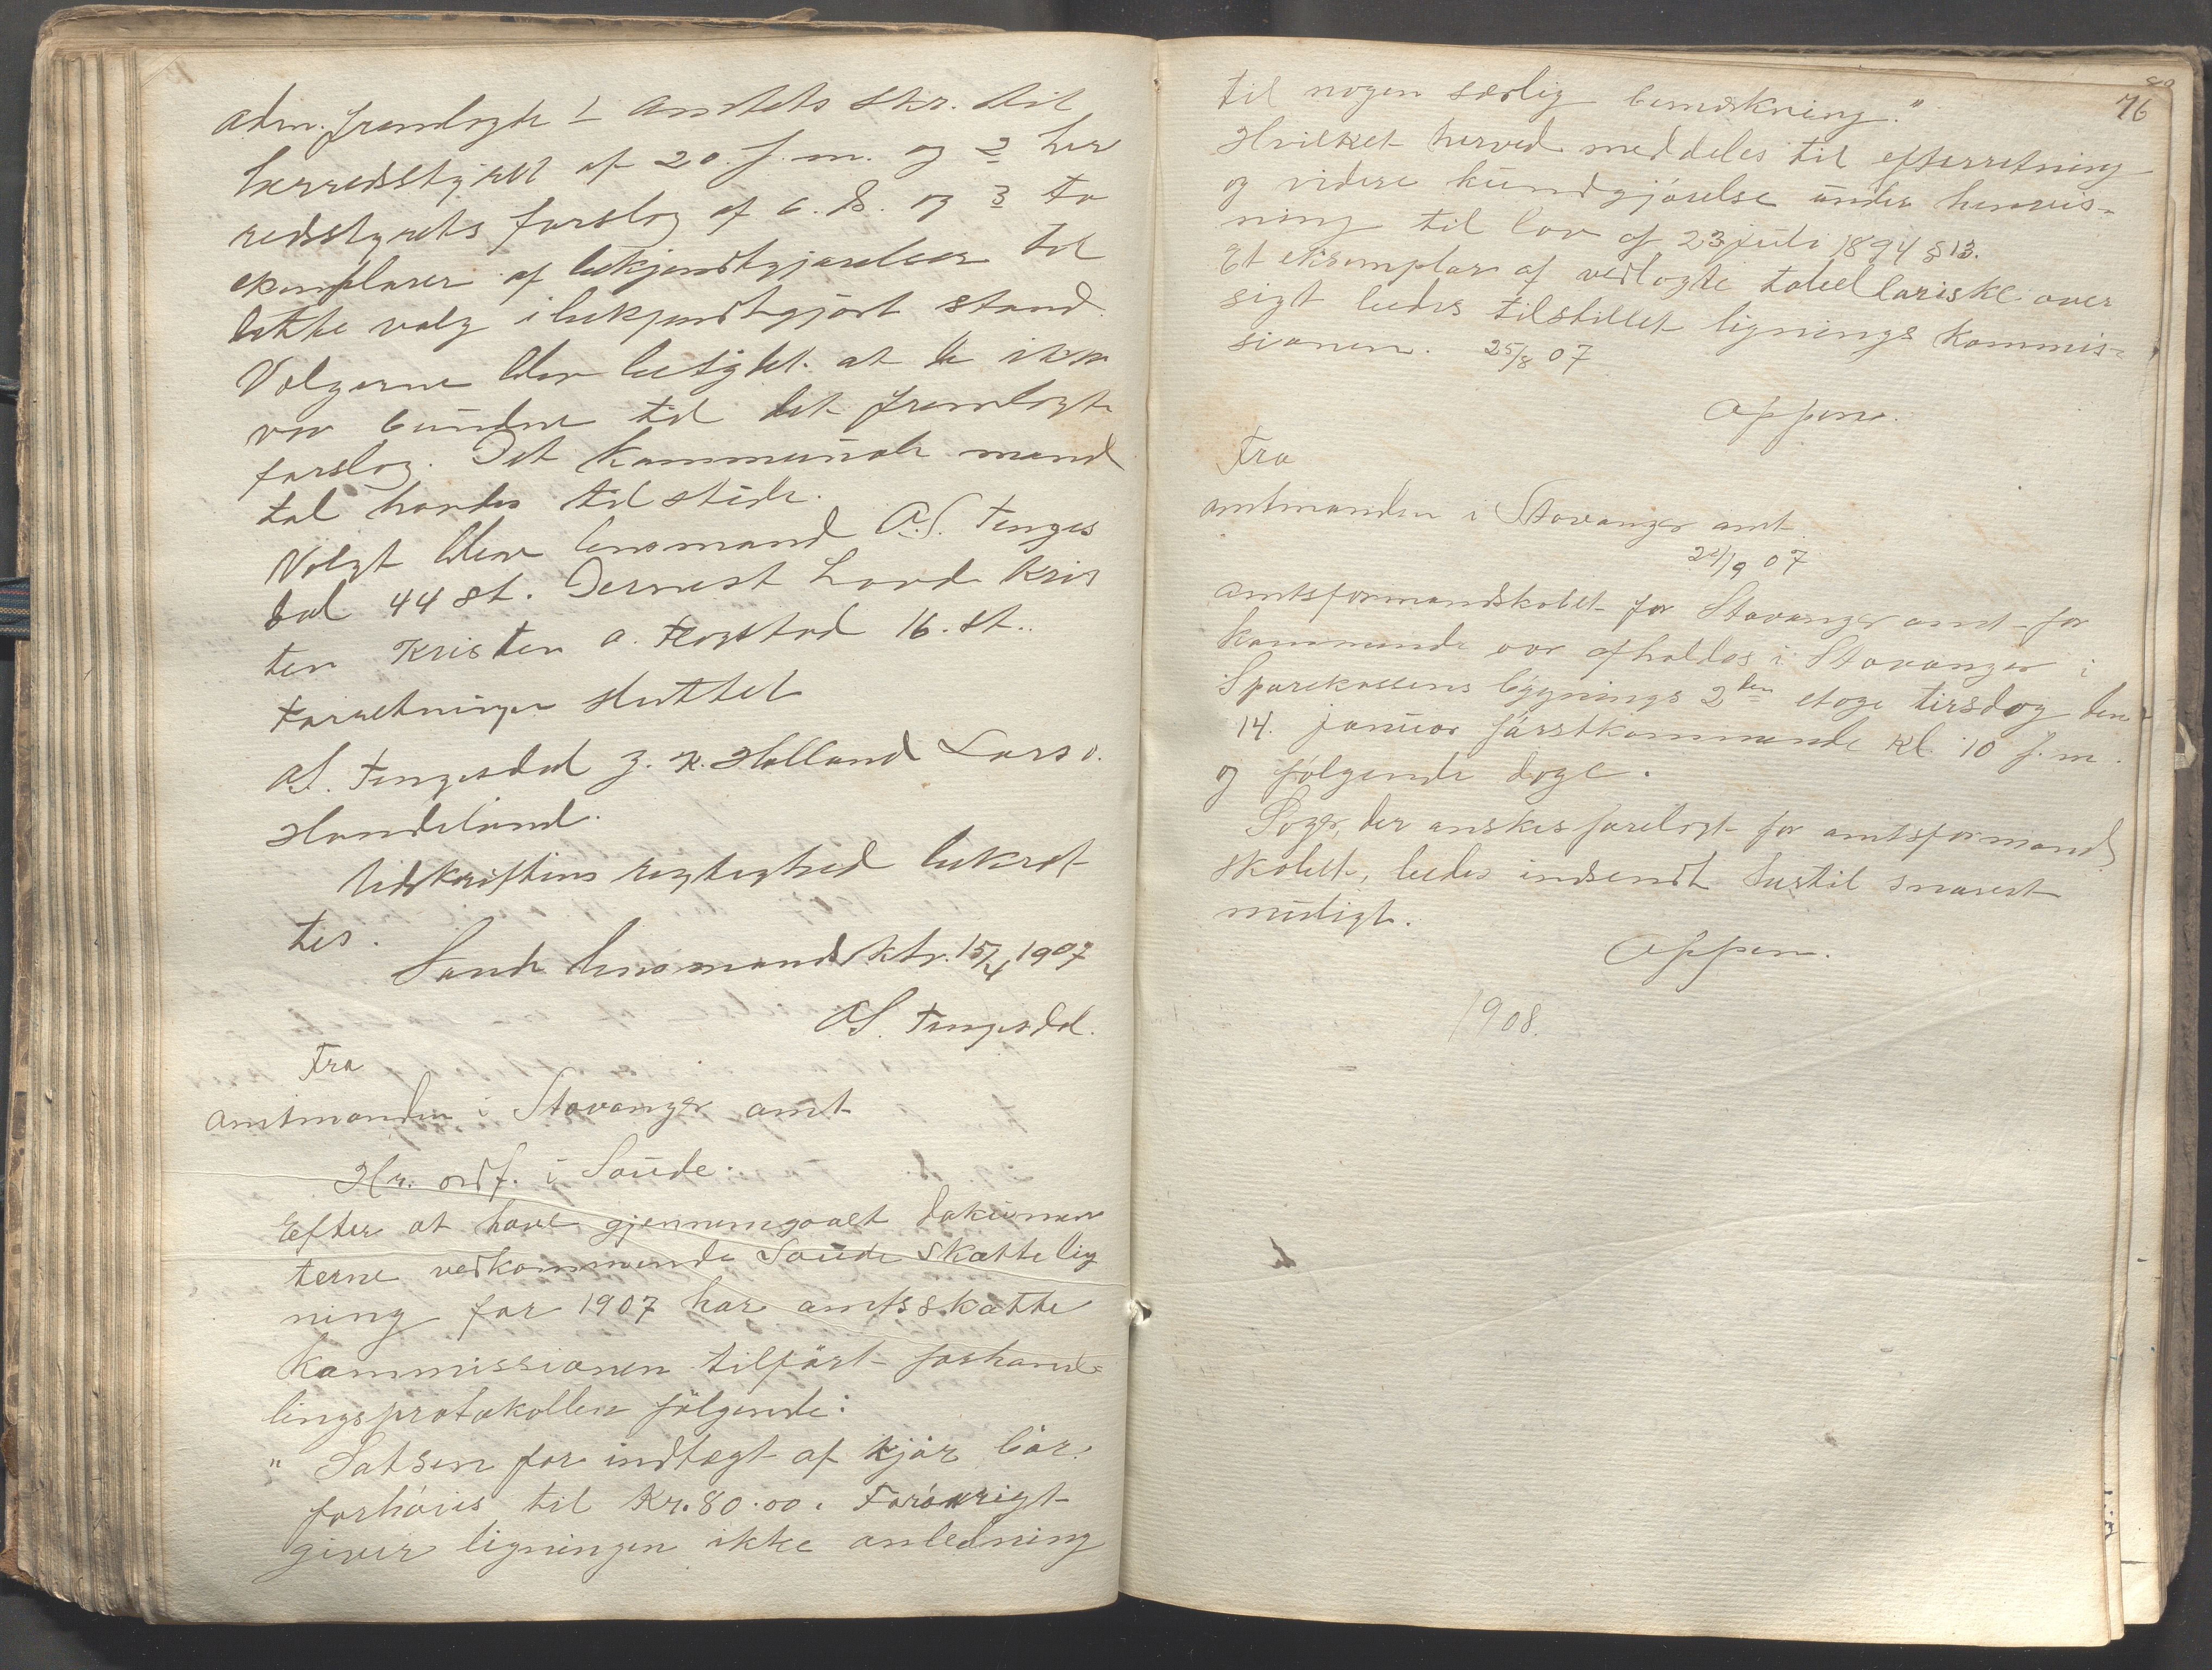 adm. fremlagde 1 amtets skr. til
herredsstyret af 20. f. m. og 2 her
redsstyrets forslag af 6. d. og 3 to
exemplarer af bekjendtgjørelser til
dette valg i bekjendtgjort stand.
Vælgerne blev betydet at de ikke
var bundne til det fremlagte
forslag. Det kommunale mand
tal havdes tilstede.
Valgt blev lensmand A. S. Tenges
dal 44 st. Dernest Landh. Kris
ten Kristen a. Fløgstad 16. st.
Forretningen sluttet
A S. Tengesdal J. K. Halland Lars O.
Handeland.
Udskriftens rigtighed bekræf
tes.
Sande lensmands ktr. 15/4 1907
A S. Tengesdal.
Fra
amtmanden i Stavanger amt
Hr. ordf. i Saude.
Efter at have gjennemgaaet dokumen
terne vedkommende Saude skattelig
ning for 1907 har amtsskatte
kommissionen tilført forhand=
lingsprotokollen følgende:
" Satsen for indtægt af kjør bør
forhøies til Kr. 80.00. Forøvrigt
giver ligningen ikke anledning
76
til nogen særlig bemærkning."
Hvilket herved meddeles til efterretning
og videre kundgjørelse under henvis-
ning til lov af 23 juli 1894 § 13.
Et eksemplar af vedlagte tabellariske over
sigt bedes tilstillet lignings kommis-
sionen. 25/8 07
Oppen.
Fra
amtmanden i Stavanger amt
21/9 07
Amtsformandskabet for Stavanger amt for
kommende aar afholdes i Stavanger i
Sparekassens bygnings 2den etage tirsdag den
14. januar førstkommende kl. 10 f. m.
og følgende dage.
Sager, der ønskes forelagt for amtsformand
skabet, bedes indsendt hertil snarest
mudigt.
Oppen.
1908.